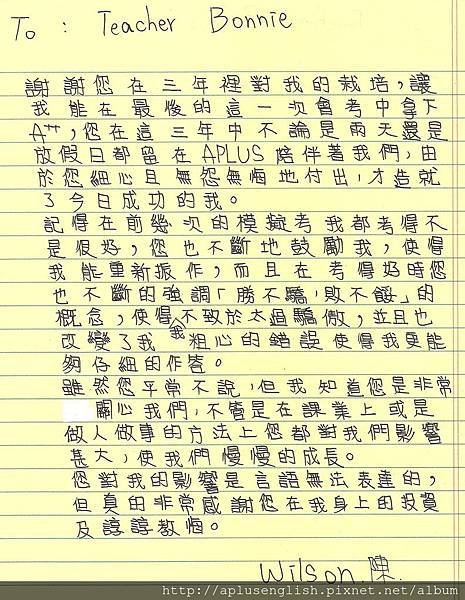 To : Teacher Bonnie
謝謝您在三年裡對我的栽培,讓
我能在最後的這一次會考中拿下
A++,您在這三年中不論是雨天還是
放假日都留在APLUS陪伴著我們,由
於您細心且無怨無悔地付出,才造就
了今日成功的我。
記得在前幾次的模擬考我都考得不
是很好,您也不斷地鼓勵我,使得
我能重新振作,而且在考得好時您
也不斷的強調「勝不驕,敗不餒」的
概念,使得我不致於太過驕傲,並且也
改變了我粗心的錯誤使得我更能
夠仔細的作答。
雖然您平常不說,但我知道您是非常
關心我們,不管是在課業上或是
做人做事的方法上您都對我們影響
甚大,使我們慢慢的成長。
您對我的影響是言語無法表達的,
但真的非常感謝您在我身上的投資
及諄諄教悔。
Wilson.陳.
http://aplusenglish.pixnet.net/album